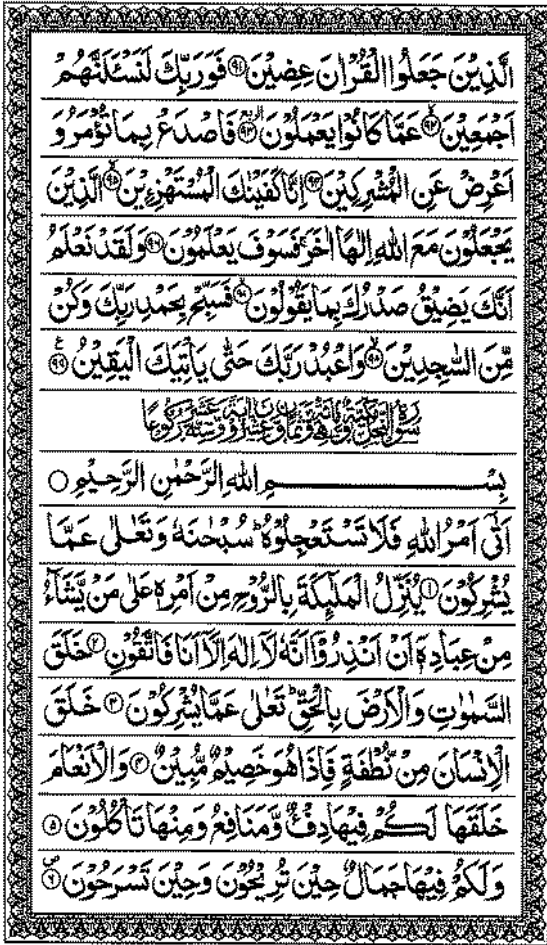 الَّذِيْنَ جَعَلُوا الْقُرْاٰنَ عِضِيْنَ ﴿۹۱﴾ فَوَرَبِّكَ لَنَسْـَٔلَنَّهُمْ
اَجْمَعِيْنَ ﴿۹۲﴾ عَمَّا كَانُوْا يَعْمَلُوْنَ ﴿۹۳﴾ فَاصْدَعْ بِمَا تُؤْمَرُ وَ
اَعْرِضْ عَنِ الْمُشْرِكِيْنَ ﴿۹۴﴾ اِنَّا كَفَيْنٰكَ الْمُسْتَهْزِءِيْنَ ﴿۹۵﴾ الَّذِيْنَ
يَجْعَلُوْنَ مَعَ اللّٰهِ اِلٰهًا اٰخَرَ ۚ فَسَوْفَ يَعْلَمُوْنَ ﴿۹۶﴾ وَلَقَدْ نَعْلَمُ
اَنَّكَ يَضِيْقُ صَدْرُكَ بِمَا يَقُوْلُوْنَ ﴿۹۷﴾ فَسَبِّحْ بِحَمْدِ رَبِّكَ وَكُنْ
مِّنَ السّٰجِدِيْنَ ﴿۹۸﴾ وَاعْبُدْ رَبَّكَ حَتّٰى يَاْتِيَكَ الْيَقِيْنُ ﴿۹۹﴾ ع
سُوْرَةُ النَّحْلِ مَكِّيَّةٌ وَّهِيَ مِائَةٌ وَّثَمَانٌ وَّعِشْرُوْنَ اٰيَةً وَّسِتَّةَ عَشَرَ رُكُوْعًا
بِسْمِ اللّٰهِ الرَّحْمٰنِ الرَّحِيْمِ ○
اَتٰٓى اَمْرُ اللّٰهِ فَلَا تَسْتَعْجِلُوْهُ ؕ سُبْحٰنَهٗ وَتَعٰلٰى عَمَّا
يُشْرِكُوْنَ ﴿۱﴾ يُنَزِّلُ الْمَلٰٓئِكَةَ بِالرُّوْحِ مِنْ اَمْرِهٖ عَلٰى مَنْ يَّشَآءُ
مِنْ عِبَادِهٖٓ اَنْ اَنْذِرُوْٓا اَنَّهٗ لَآ اِلٰهَ اِلَّآ اَنَا فَاتَّقُوْنِ ﴿۲﴾ خَلَقَ
السَّمٰوٰتِ وَالْاَرْضَ بِالْحَقِّ ؕ تَعٰلٰى عَمَّا يُشْرِكُوْنَ ﴿۳﴾ خَلَقَ
الْاِنْسَانَ مِنْ نُّطْفَةٍ فَاِذَا هُوَ خَصِيْمٌ مُّبِيْنٌ ﴿۴﴾ وَالْاَنْعَامَ
خَلَقَهَا لَكُمْ فِيْهَا دِفْءٌ وَّمَنَافِعُ وَمِنْهَا تَاْكُلُوْنَ ﴿۵﴾
وَلَكُمْ فِيْهَا جَمَالٌ حِيْنَ تُرِيْحُوْنَ وَحِيْنَ تَسْرَحُوْنَ ﴿۶﴾